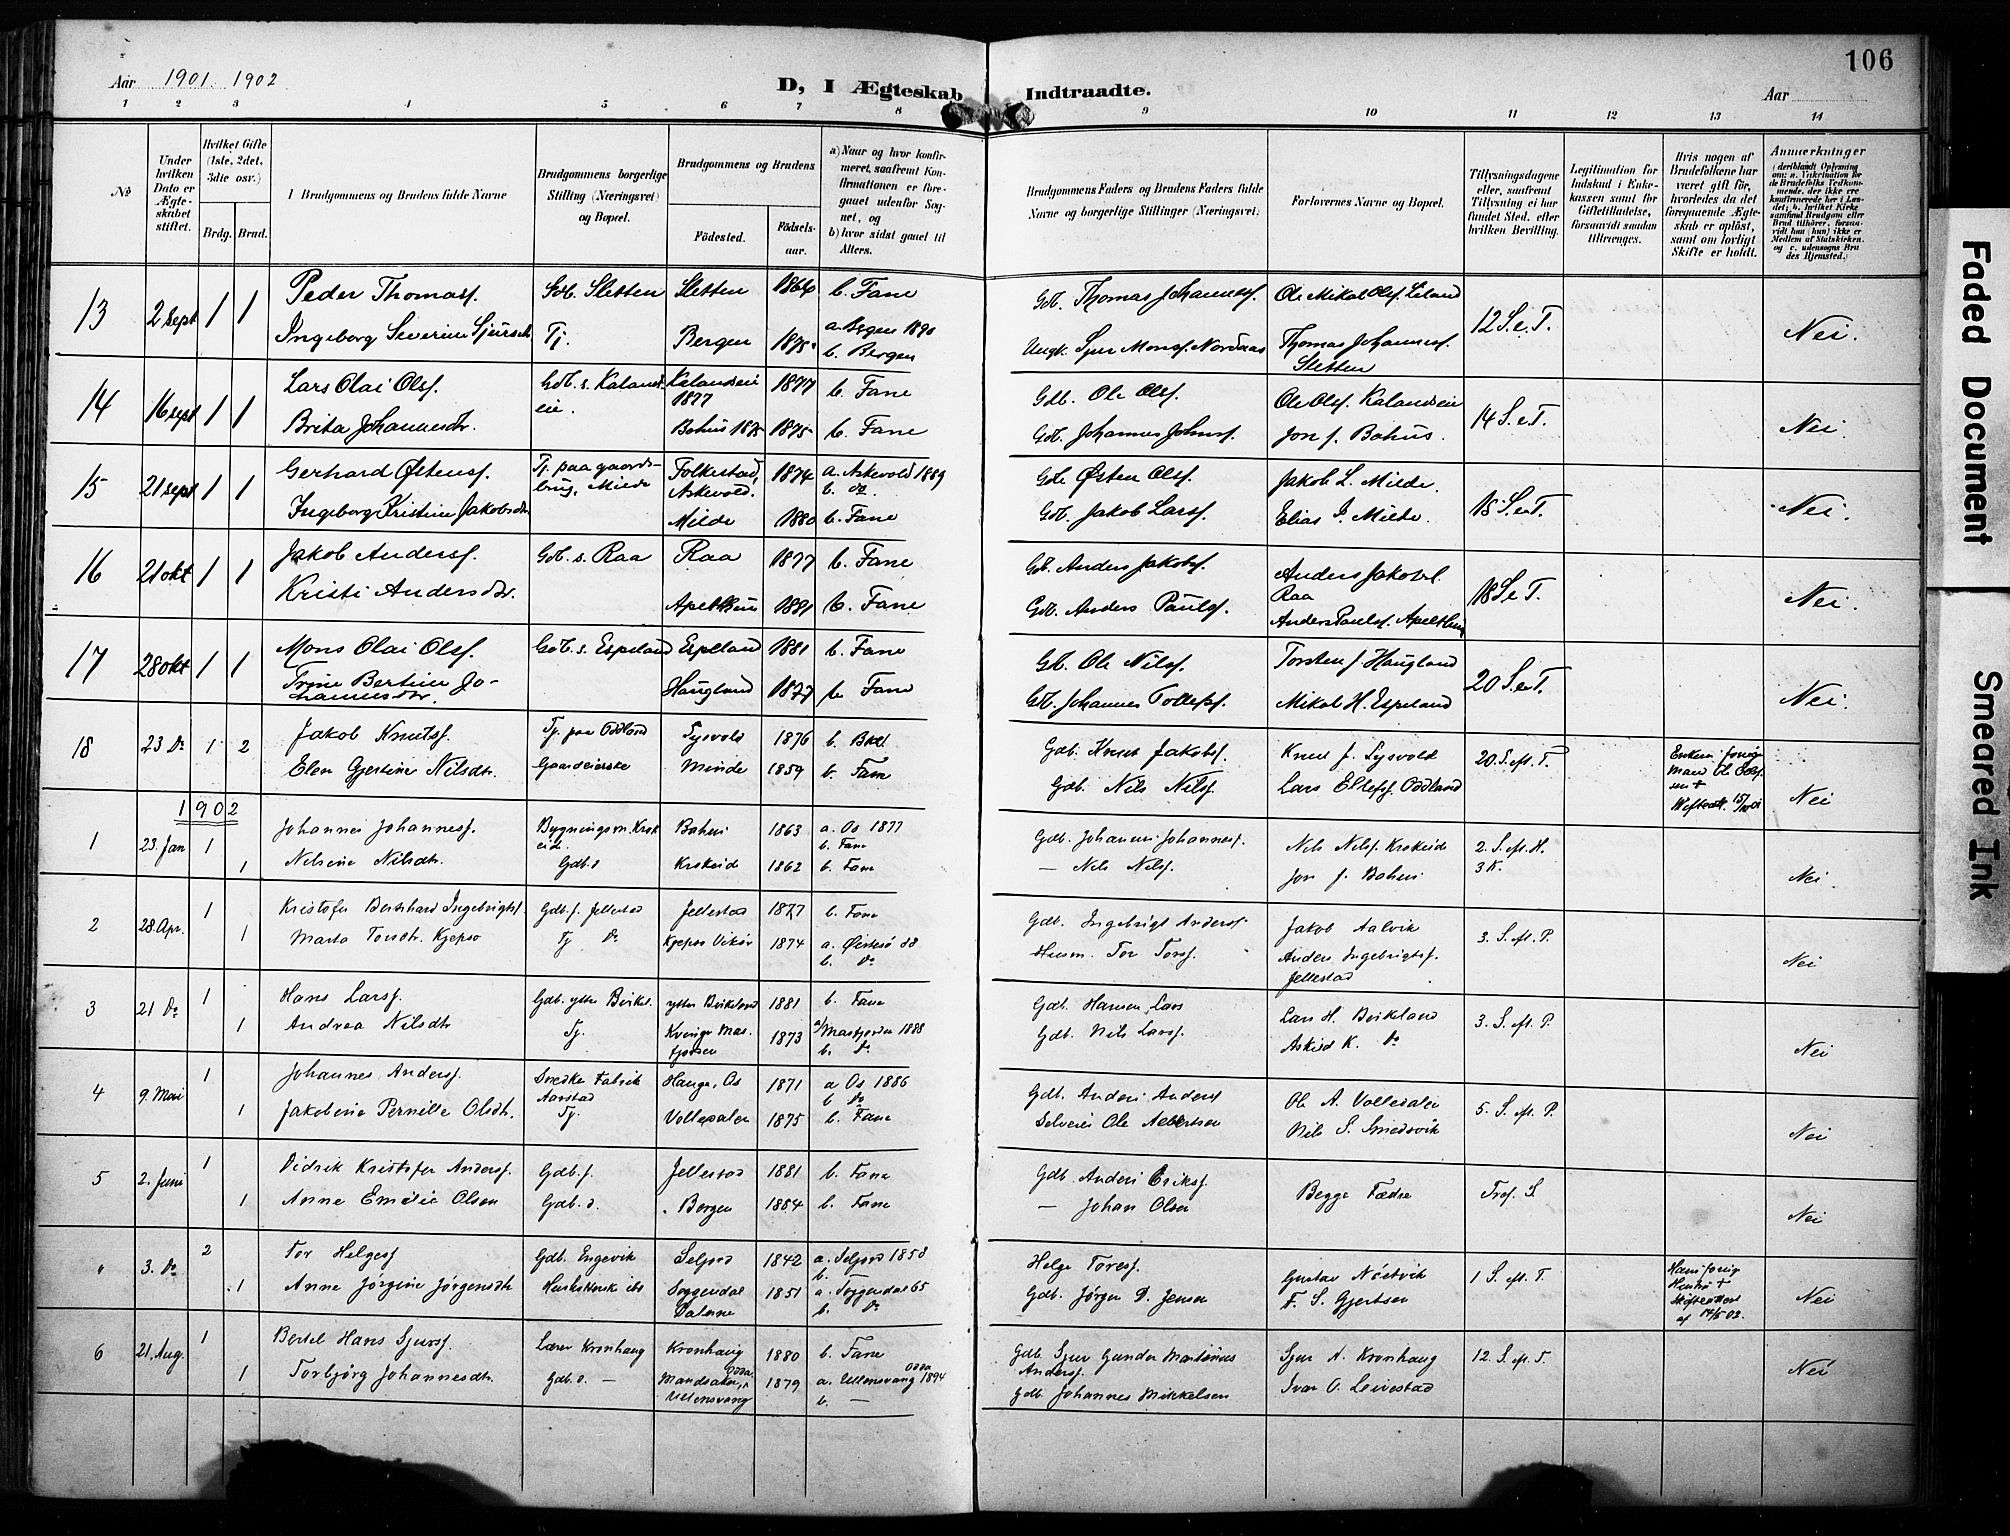 106
Aar 1901. 1902
D, I Ægteskab Indtraadte.
Aar
1 2 3 4 5 6 7 8 9 10 11 12 13 14
No
Under hvilken Dato er Ægteskabet stiftet.
Hvilket Gifte (1ste, 2det, 3die osv.)
Brdg. Brud.
Brudgommens og Brudens fulde Navne
Brudgommens borgerlige Stilling (Næringsvei) og Bopæl.
Brudgommens og Brudens
Fødested.
Fødselsaar.
a) Naar og hvor konfirmeret, saafremt Konfirmationen er foregaaet udenfor Sognet, og
b) hvor sidst gaaet til Alters.
Brudgommens Faders og Brudens Faders fulde Navne og borgerlige Stillinger (Næringsvei)
Forlovernes Navne og Bopæl.
Tillysningsdagene eller, saafremt Tillysning ei har fundet Sted, efter hvilken Bevilling.
Legitimation for Indskud i Enkekassen samt for Giftetilladelse, forsaavidt saadan tiltrænges.
Hvis nogen af Brudefolkene har været gift før, hvorledes da det foregaaende Ægteskab er opløst, samt om lovligt Skifte er holdt.
Anmærkninger
13 2 Sept 1 1 Peder Thomasf. Gdb. Sletten Sletten 1866 b. Fane Gdb. Thomas Johannesf. Ole Mikal Olsf. Liland 12 S. e. T. Nei.
Ingeborg Severine Sjursdtr Tj. Bergen 1875 a. Bergen 1890 b. Bergen Ungk. Sjur Monsf. Nordaas Thomas Johannesf. Sletten
14 16 sept 1 1 Lars Olai Olsf. Gdb. s. Kalandseie. Kalandseie 1877 1877 b. Fane Gdb. Ole Olsf. Ole Olsf. Kalandseie 14 S. e. T. Nei.
Brita Johannesdtr. Bahus 1875 1875 b. Fane Gdb. Johannes Johnsf. Jon J. Bahus.
15 21 sept 1 1 Gerhard Østensf. Tj. paa gaardsbrug, Milde Folkestad, Askevold. 1874 a. Askevold 1889 b. do. Gdb Østen Olsf. Jakob L. Milde. 15 S. e. T. Nei.
Ingeborg Kristine Jakobsdtr Milde 1880 b. Fane Gdb. Jakob Larsf. Elias J. Milde.
16 21 okt 1 1 Jakob Andersf. Gdb. s. Raa Raa 1877 b. Fane Gdb. Anders Jakobsf. Anders Jakobsf. Raa 18 S. e. T. Nei.
Kristi Andersdtr. Apelthun 1881 b. Fane Gdb. Anders Paulsf. Anders Paulsf. Apelthun
17 28 okt 1 1 Mons Olai Olsf. Gdb. s. Espeland Espeland 1881 b. Fane Gdb. Ole Nilsf. Torsten J. Haugland 20 S. e. T. Nei.
Trine Bertine Johannesdtr. Haugland 1877 b. Fane Gdb. Johannes Tollefsf. Mikal H. Espeland
18 23 Do 1 2 Jakob Knutsf. Tj. paa Oddland Tysvold 1876 b. Gdb. Knut Jakobsf. Knut J. Tysvold 20. S. eft. T. Nei
Elen Gjertine Nilsdtr. Gaardeierske Minde 1859 b. Fane Gdb. Nils Nilsf. Lars Ellefsf. Oddland
1902
1 23. Jan 1 Johannes Johannesf. Bygningsm. Krokeide Bahus 1863 a. Os 1877 b. Fane Gdb. Johannes Johannesf. Nils Nilsf. Krokeide 2. S. eft. H. 3 K. Nei.
1 Nilsine Nilsdtr. Gdb. d Krokeide 1862 b. Fane — Nils Nilsf. Jon J. Bahus
2 28. Apr. 1 Kristofer Bernhard Ingebrigtsf. Gdb. s. Jellestad Jellestad 1877 b. Fane Gdb. Ingebrigt Andersf. Jakob Aalvik 3. S. eft. P. Nei
1 Marta Torsdtr. Kjepso Tj Do Kjepso Vikør 1874 a. Østesø 88 b. Do Husm. Tor Torsf. Anders Ingebrigtsf. Jellestad
3 21 Do 1 Hans Larsf. Gdb. ytter Birkel. ytter Birkeland 1881 b. Fane Gdb. Hansen Lars Lars H. Birkeland 3. S. eft. P. Nei
1 Andrea Nilsdtr Tj. Kvinge Masfjorden 1873 a/ Masfjorden 1888 b. Do Gdb. Nils Larsf. Askild K. Do
4 9. Mai 1 Johannes Andersf. Fabrik Aarstad Hauge, Os 1871 a Os 1886 b Do Gdb. Anders Andersf Ole A. Volledalen 5. S. eft. P. Nei
1 Jakobine Pernille Olsdtr. Tj. Volledalen 1875 b. Fane Selveier Ole Albertsen Nils S. Smedsvik
5 2. Juni 1 Didrik Kristofer Andersf. Gdb. s. Jellestad 1881 b. Fane Gdb. Anders Eriksf. Begge Fædre Tref. S. Nei
1 Anne Emilie Olsen Gdb. d. Bergen 1884 b. Fane — Johan Olsen
" 3. Do 2 Tor Helgesf Gdb. Engevik Seljord 1842 a. Seljord 1858 b. Helge Toresf. Gustav Nöstvik 1 S. eft. T. Nei
1 Anne Jörgine Jörgensdtr Soggendal Dalane 1851 a. Soggendal 65 b. Do Gdb. Jörgen D. Jensen F. S. Gjertsen
6 21. Aug. 1 Bertel Hans Sjursf. Lærer Kronhaug Kronhaug 1880 b. Fane Gdb. Sjur Gunder Martinus Andersf. Sjur A. Kronhaug 12. S. eft. T. Nei
1 Torbjörg Johannesdtr. Gdb. d. — Mandsaker, Odda, Ullensvang 1879 a. Ullensvang Odda 1894 b. — Gdb. Johannes Mikkelsen Ivar O. Leivestad
Faded Document
Smeared Ink